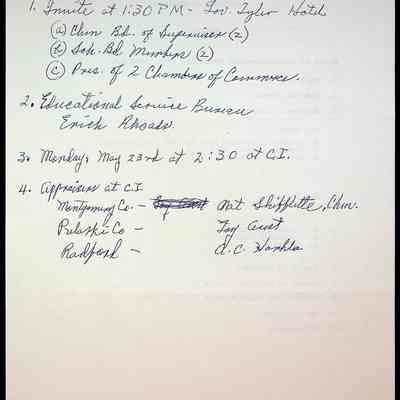 1. Invite at 1:30 PM - Gov. Tyler Hotel
(a) Chm Bd. of Supervisors (2)
(b) Sch. Bd Members (2)
(c) Pres. of 2 Chambers of Commerce.
2. Educational Service Bureau
Erich Rhoads
3. Monday, May 23rd at 2:30 at C.I.
4. Appraisers at C.I.
Montgomery Co. - Nat Shifflette, Chm.
Pulaski Co - Foy Aust
Radford - A.C.